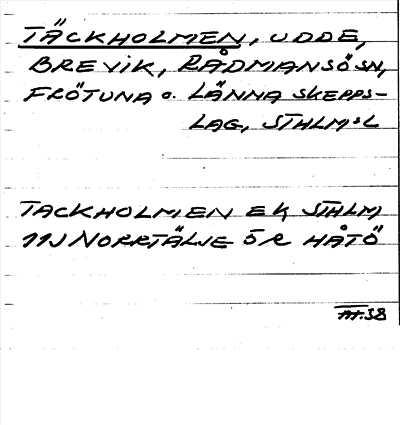 TÄCKHOLMEN, UDDE,
BREVIK, RÅDMANSÖ SN,
FRÖTUNA o. LÄNNA SKEPPS-
LAG, STHLMSL
TACKHOLMEN EK, STHLM
11J NORRTÄLJE 5R HÅTÖ